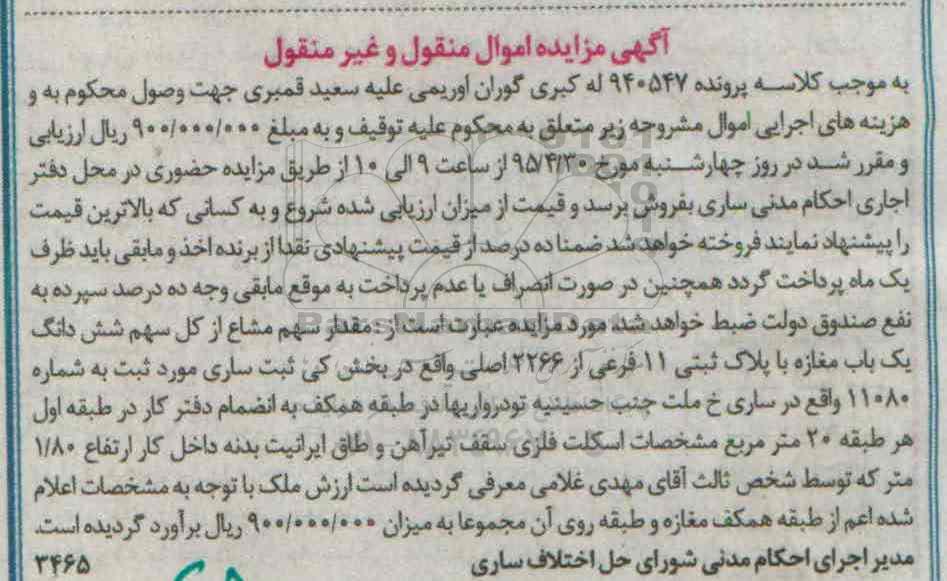 آگهی مزایده اموال منقول و غیر منقول
به موجب کلاسه پرونده ۹۴۰۵۴۷ له کبری گوران اوریمی علیه سعید قمبری جهت وصول محکوم به و
هزینه های اجرایی اموال مشروحه زیر متعلق به محکوم علیه توقیف و به مبلغ ۹۰۰/۰۰۰/۰۰۰ ریال ارزیابی
و مقرر شد در روز چهارشنبه مورخ ۹۵/۴/۳۰ از ساعت ۹ الی ۱۰ از طریق مزایده حضوری در محل دفتر
اجاری احکام مدنی ساری بفروش برسد و قیمت از میزان ارزیابی شده شروع و به کسانی که بالاترین قیمت
را پیشنهاد نمایند فروخته خواهد شد ضمنا ده درصد از قیمت پیشنهادی نقدا از برنده اخذ و مابقی باید ظرف
یک ماه پرداخت گردد همچنین در صورت انصراف یا عدم پرداخت به موقع مابقی وجه ده درصد سپرده به
نفع صندوق دولت ضبط خواهد شد. مورد مزایده عبارت است از: مقدار سهم مشاع از کل سهم شش دانگ
یک باب مغازه با پلاک ثبتی ۱۱ فرعی از ۲۲۶۶ اصلی واقع در بخش کی ثبت ساری مورد ثبت به شماره
۱۱۰۸۰ واقع در ساری خ ملت جنب حسینیه تودرواریها در طبقه همکف به انضمام دفتر کار در طبقه اول
هر طبقه ۲۰ متر مربع مشخصات اسکلت فلزی سقف تیرآهن و طاق ایرانیت بدنه داخل کار ارتفاع ۱/۸۰
متر که توسط شخص ثالث آقای مهدی غلامی معرفی گردیده است ارزش ملک با توجه به مشخصات اعلام
شده اعم از طبقه همکف مغازه و طبقه روی آن مجموعا به میزان ۹۰۰/۰۰۰/۰۰۰ ریال برآورد گردیده است.
مدیر اجرای احکام مدنی شورای حل اختلاف ساری ۳۴۶۵